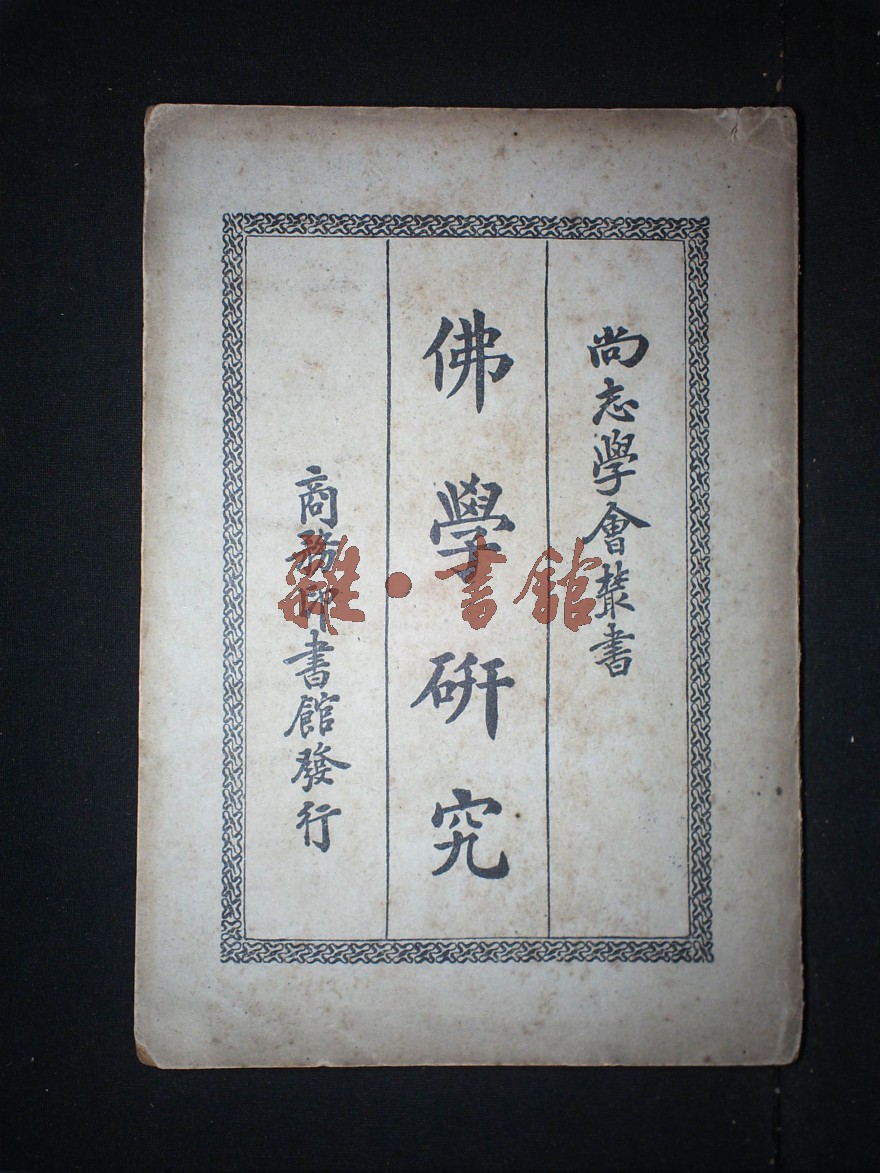 尚志學會叢書
佛學研究
商務印書館發行
雜·書館